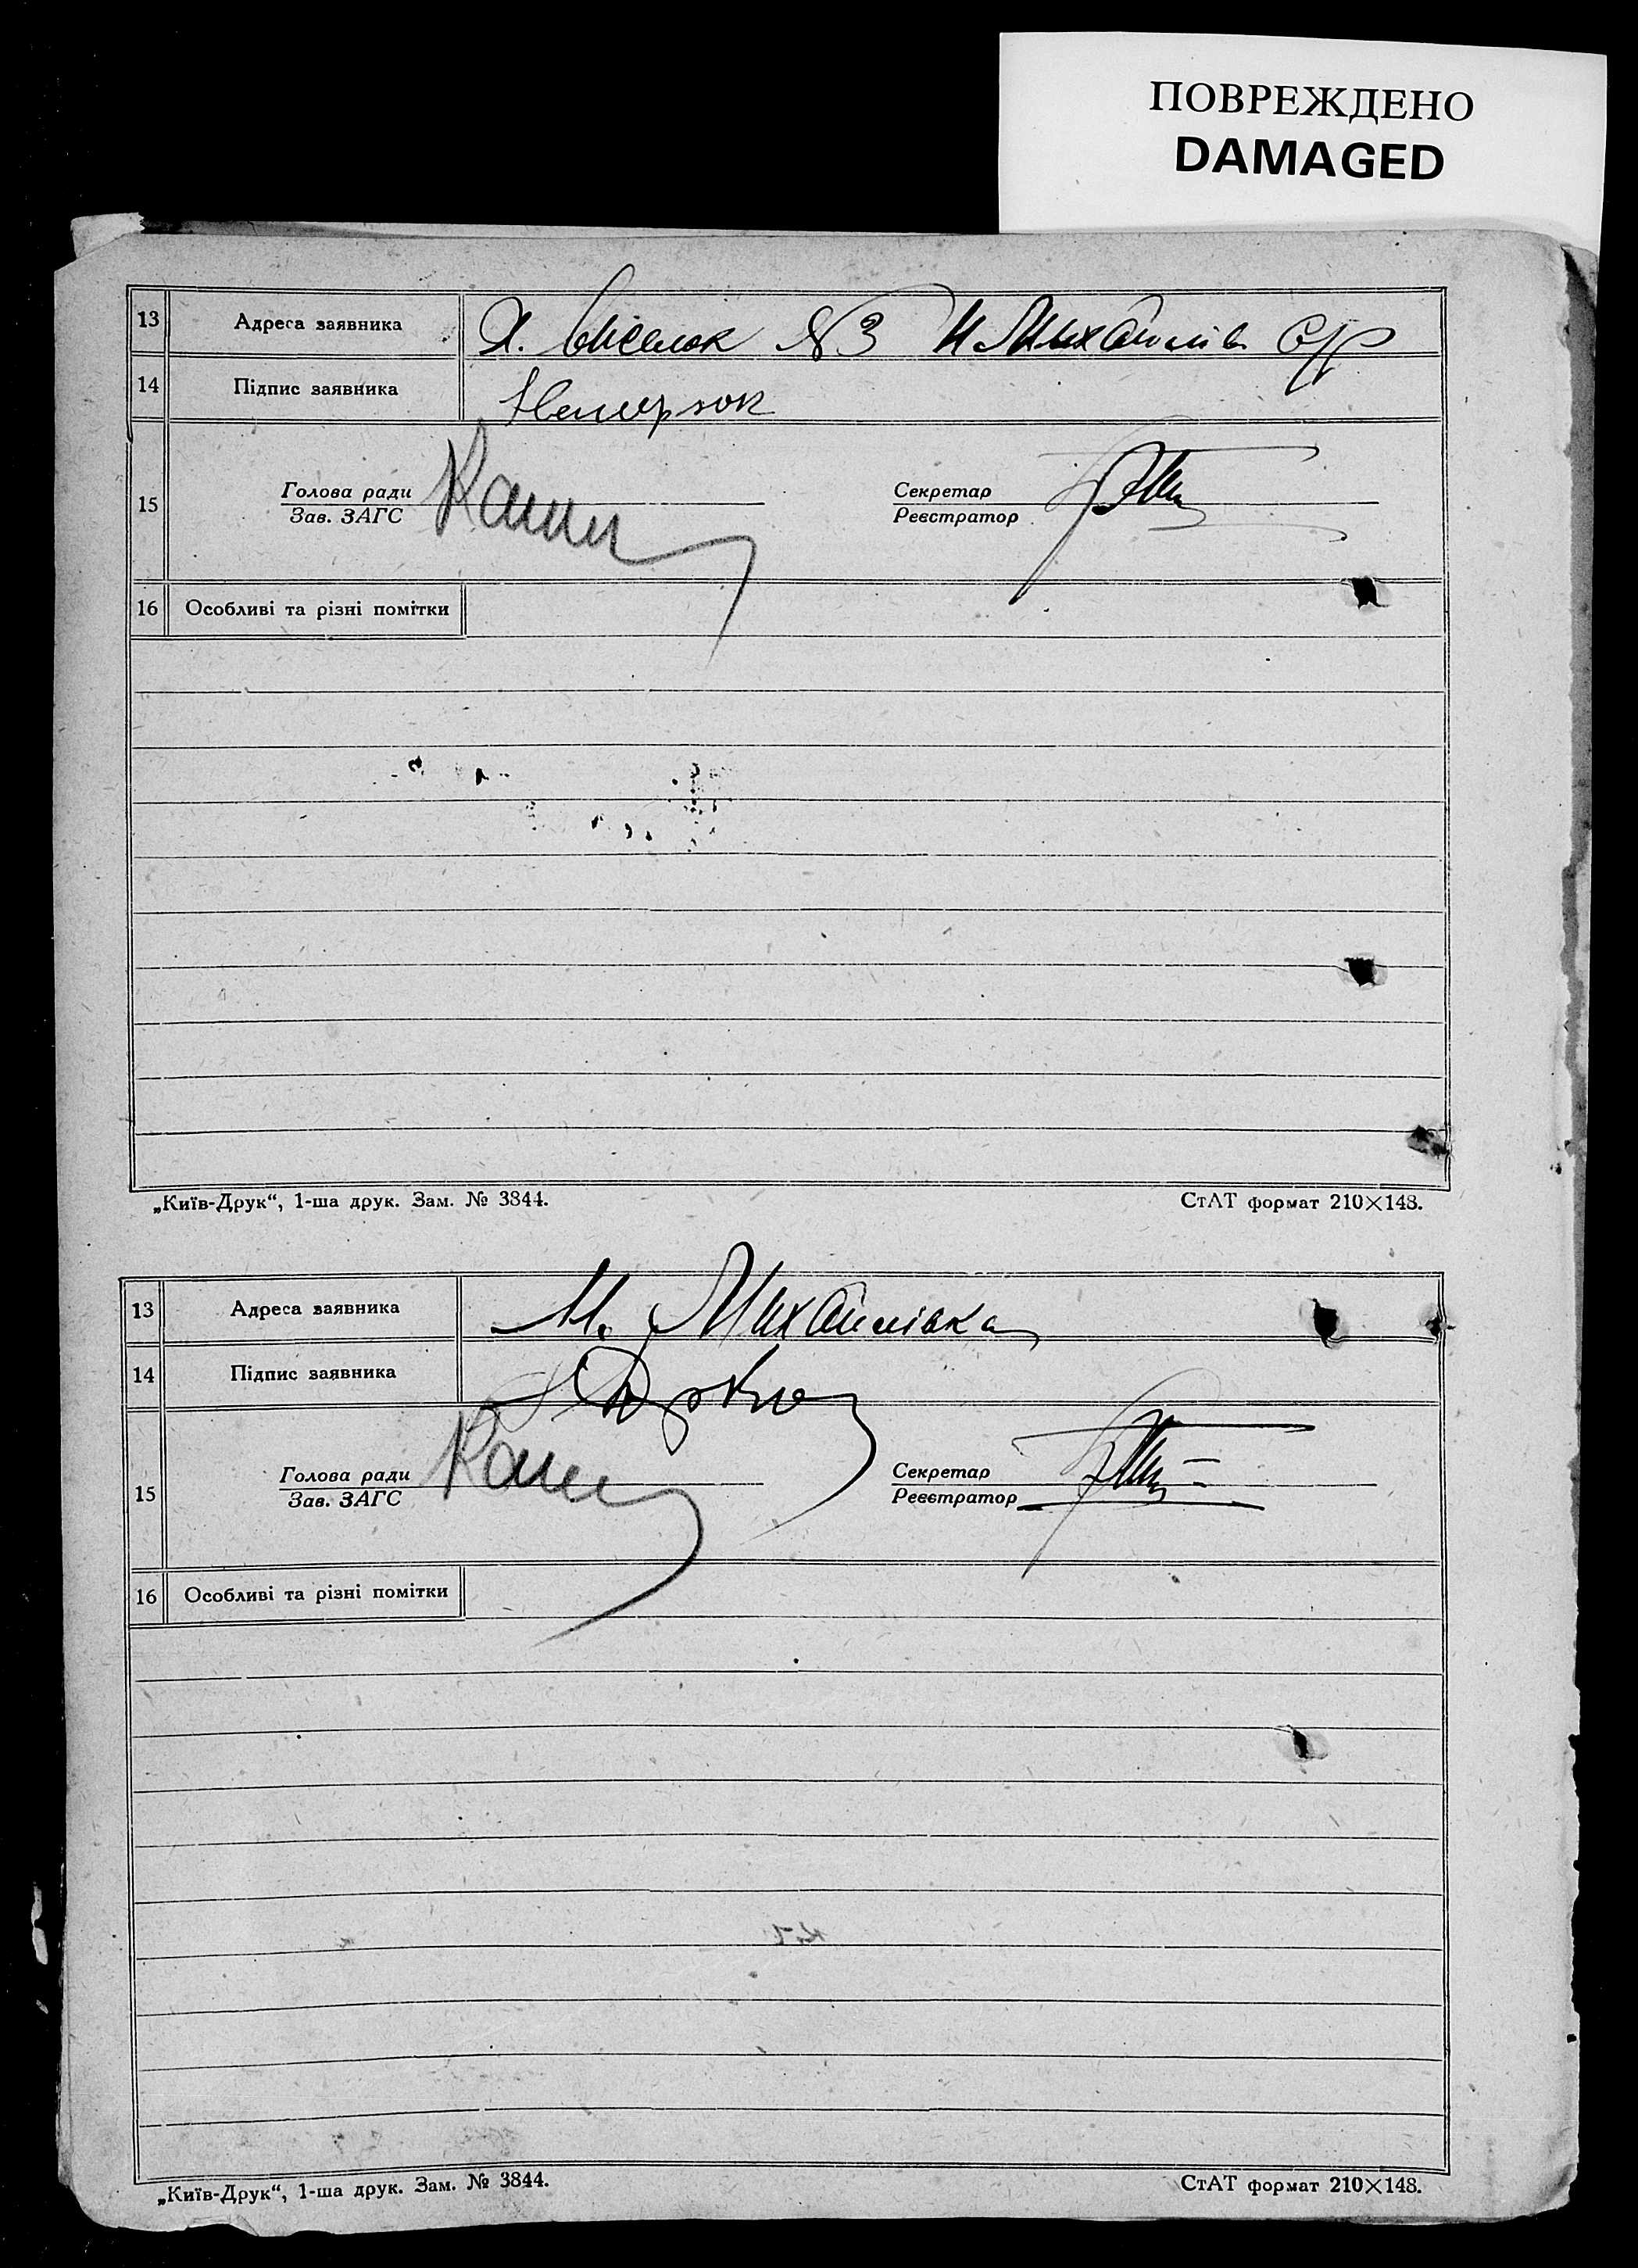 ПОВРЕЖДЕНО
DAMAGED
13 Адреса заявника Х. Виселок №3 Н. Михайлів. с/р
14 Підпис заявника
15 Голова ради Секретар
Зав. ЗАГС Реєстратор
16 Особливі та різні помітки
„Київ-Друк“, 1-ша друк. Зам. № 3844. СтАТ формат 210×148.
13 Адреса заявника М. Михайлівка
14 Підпис заявника
15 Голова ради Секретар
Зав. ЗАГС Реєстратор
16 Особливі та різні помітки
„Київ-Друк“, 1-ша друк. Зам. № 3844. СтАТ формат 210×148.